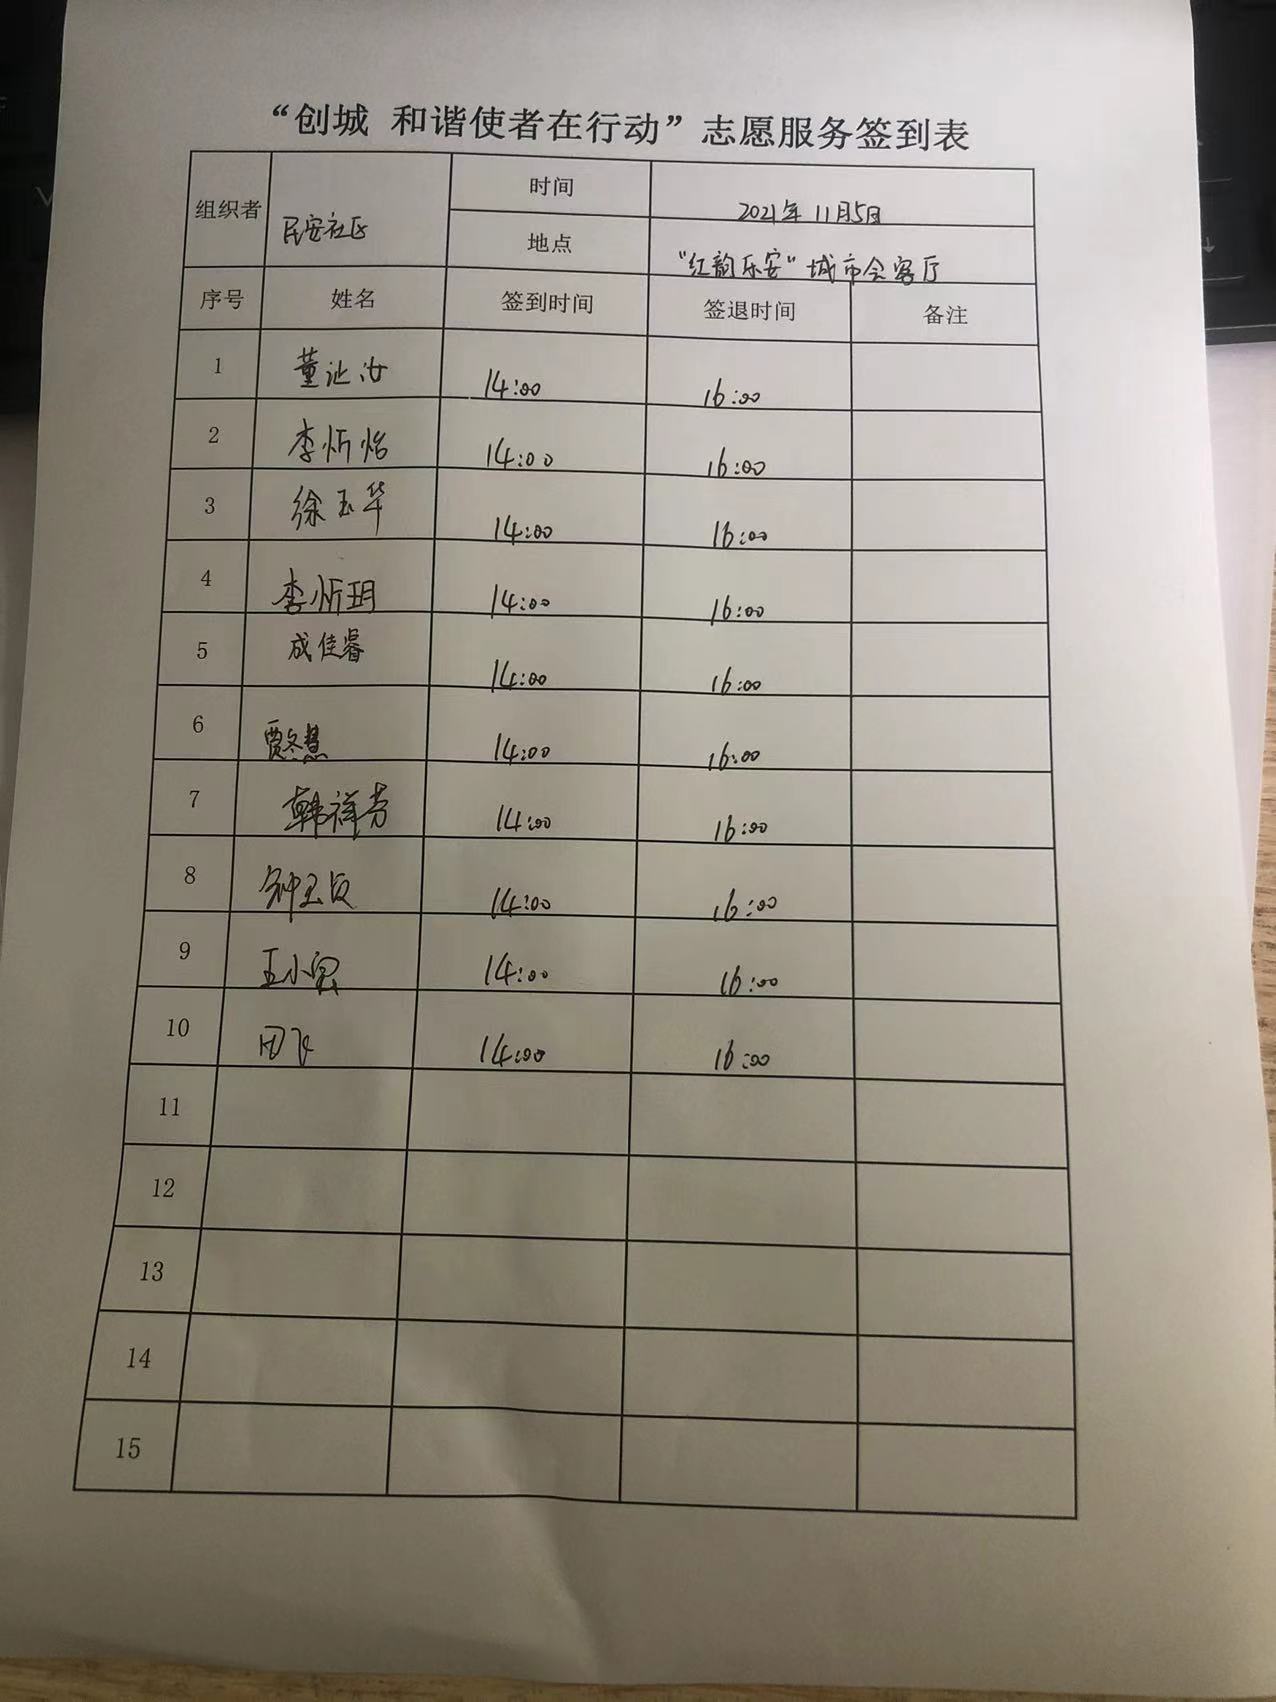 “创城 和谐使者在行动”志愿服务签到表
组织者 民安社区 时间 2021年11月5日
地点 “红韵乐安”城市会客厅
序号 姓名 签到时间 签退时间 备注
1 董沚汝 14:00 16:00
2 李炘怡 14:00 16:00
3 徐玉华 14:00 16:00
4 李炘玥 14:00 16:00
5 成佳睿 14:00 16:00
6 贾冬慧 14:00 16:00
7 韩祥芳 14:00 16:00
8 钟玉 14:00 16:00
9 王小 14:00 16:00
10 田飞 14:00 16:00
11
12
13
14
15